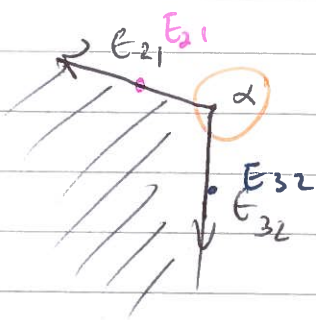 E21 E21
α
E32
E32